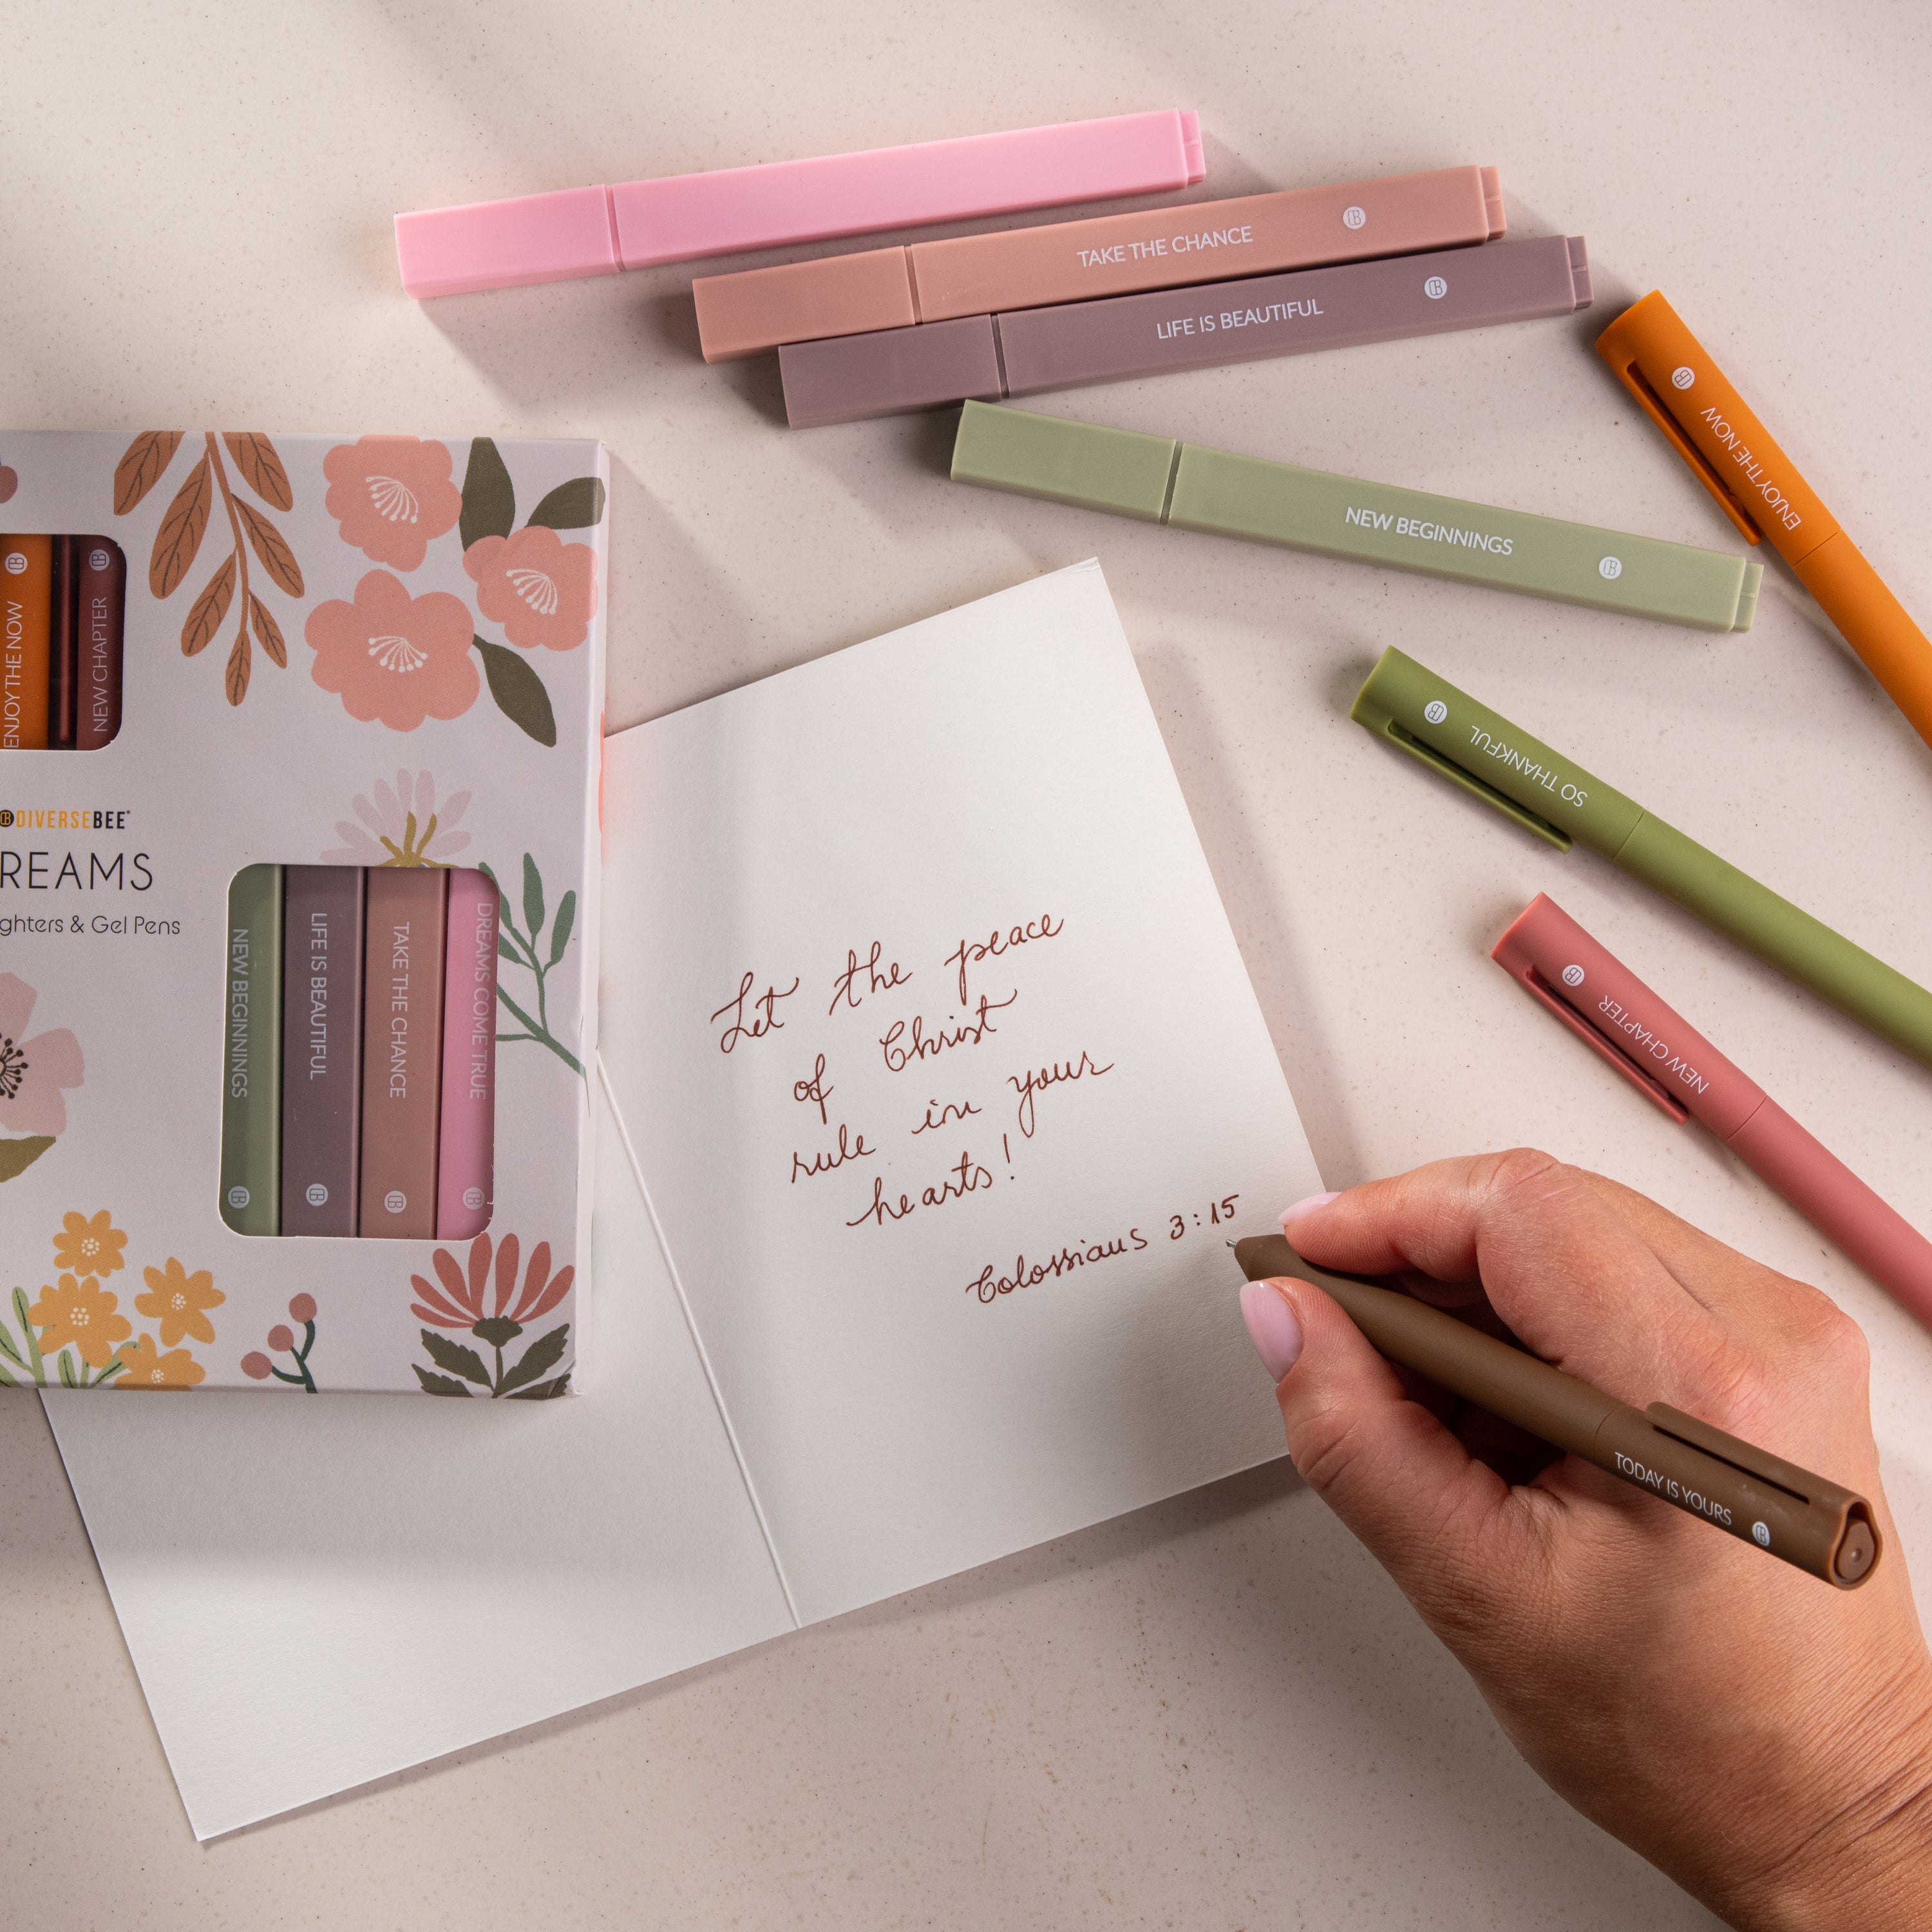 TAKE THE CHANCE
LIFE IS BEAUTIFUL
NEW BEGINNINGS
ENJOY THE NOW
SO THANKFUL
NEW CHAPTER
ENJOY THE NOW
NEW CHAPTER
DIVERSEBEE
REAMS
ghters & Gel Pens
NEW BEGINNINGS
LIFE IS BEAUTIFUL
TAKE THE CHANCE
DREAMS COME TRUE
Let the peace
of Christ
rule in your
hearts!
Colossians 3:15
TODAY IS YOURS